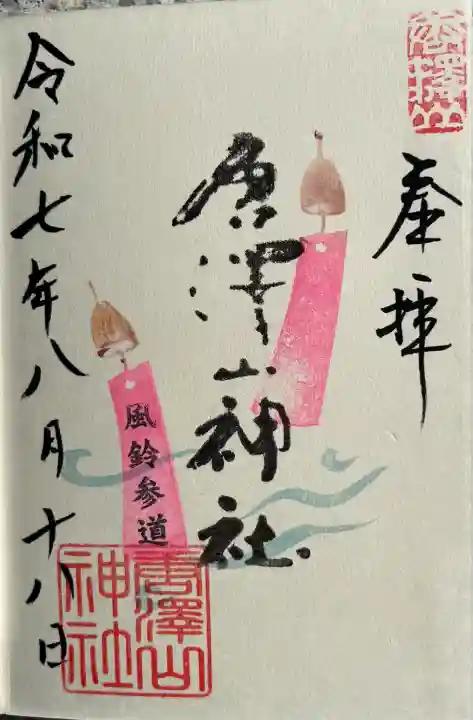 奉拝
唐澤山
唐澤山神社
風鈴参道
唐澤山
神社
令和七年八月十八日